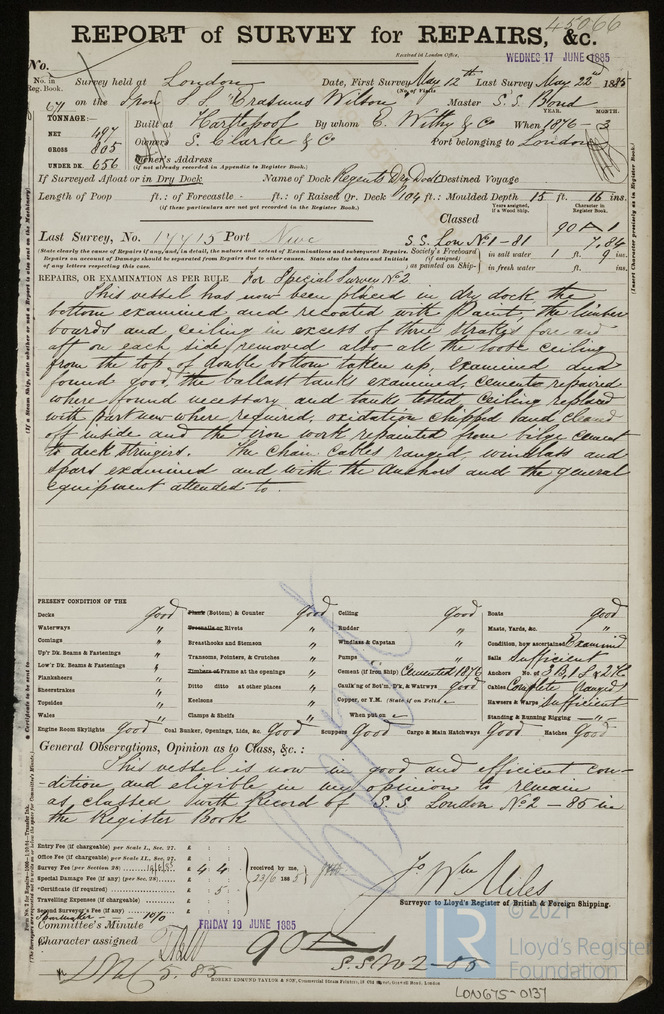 45066
REPORT of SURVEY for REPAIRS, &c.
Received at London Office, WEDNES 17 JUNE 1885
No.
No. in Reg. Book. Survey held at London Date, First Survey May 12th Last Survey May 22nd 1885
671 on the Iron S.S. "Erasmus Wilson" Master S. S. Bond
TONNAGE:— Built at Hartlepool By whom E. Withy & Co When 1876 - 3
YEAR. MONTH.
NET 497
GROSS 805 Owners S. Clarke & Co Port belonging to London
UNDER DK. 656 Owner's Address
(if not already recorded in Appendix to Register Book.)
If Surveyed Afloat or in Dry Dock Name of Dock Regents Dry Dock Destined Voyage
Length of Poop ft.: of Forecastle - ft.: of Raised Qr. Deck 104 ft.: Moulded Depth 15 ft. 16 ins.
(if these particulars are not yet recorded in the Register Book.)
Classed
Years assigned, if a Wood ship. Character in Register Book.
90 A 1
Last Survey, No. 17715 Port Newc S.S. Lon No 1-81 7.84
State clearly the cause of Repairs if any, and, in detail, the nature and extent of Examinations and subsequent Repairs.
Repairs on account of Damage should be separated from Repairs due to other causes. State also the dates and Initials
of any letters respecting this case.
Society's Freeboard (if assigned) as painted on Ship- in salt water 1 ft. 9 ins.
in fresh water ft. ins.
REPAIRS, OR EXAMINATION AS PER RULE For Special Survey No 2
This vessel has now been placed in dry dock, the
bottom examined and recoated with Paint, the limber
boards and ceiling in excess of three strakes fore and
aft on each side removed also all the loose ceiling
from the top of double bottom taken up, examined and
found good, the ballast tanks examined, cements repaired
where found necessary and tanks tested, ceiling replaced
with part new where required, oxidation chipped and cleaned
off inside and the iron work repainted from bilge cement
to deck stringers. The chain cables ranged, windlass and
spars examined and with the anchors and the general
equipment attended to.
PRESENT CONDITION OF THE
Decks good
Waterways "
Comings "
Up'r Dk. Beams & Fastenings "
Low'r Dk. Beams & Fastenings "
Planksheers "
Sheerstrakes "
Topsides "
Wales "
Plank (Bottom) & Counter good
Treenails or Rivets "
Breasthooks and Stemson "
Transoms, Pointers, & Crutches "
Timbers or Frame at the openings "
Ditto ditto at other places "
Keelsons "
Clamps & Shelfs "
Ceiling good
Rudder "
Windlass & Capstan "
Pumps "
Cement (if Iron Ship) Cemented 1876
Caulk'ng of Bot'm, D'k, & Watrwys good
Copper, or Y.M. (State if on Felt)
When put on
Boats good
Masts, Yards, &c. "
Condition, how ascertained Examined
Sails Sufficient
Anchors No. of 3 B, 1 S & 2 K
Cables Complete Ranged
Hawsers & Warps Sufficient
Standing & Running Rigging "
Engine Room Skylights good Coal Bunker, Openings, Lids, &c. good Scuppers Good Cargo & Main Hatchways Good Hatches Good
General Observations, Opinion as to Class, &c.:
This vessel is now in good and efficient con-
-dition and eligible in my opinion to remain
as classed with Record of S.S. London No 2 - 85 in
the Register Book
Entry Fee (if chargeable) per Scale I., Sec. 27. £ : :
Office Fee (if chargeable) per Scale II., Sec. 27. £ : :
Survey Fee (per Section 28) £ 4 : 4 :
Special Damage Fee (if any) (per Sec. 28) £ : :
*Certificate (if required) £ : 5 :
Travelling Expenses (if chargeable) £ : :
Second Surveyor's Fee (if any) 10/0
received by me, 23/6 1885
Jos Wm Miles
Surveyor to Lloyd's Register of British & Foreign Shipping.
Committee's Minute FRIDAY 19 JUNE 1885
Character assigned 90 A 1
LMC 5. 85
S.S No 2 - 85
ROBERT EDMUND TAYLOR & SON, Commercial Steam Printers, 19 Old Street, Goswell Road, London
LR
© 2021
Lloyd's Register
Foundation
LON675-0137